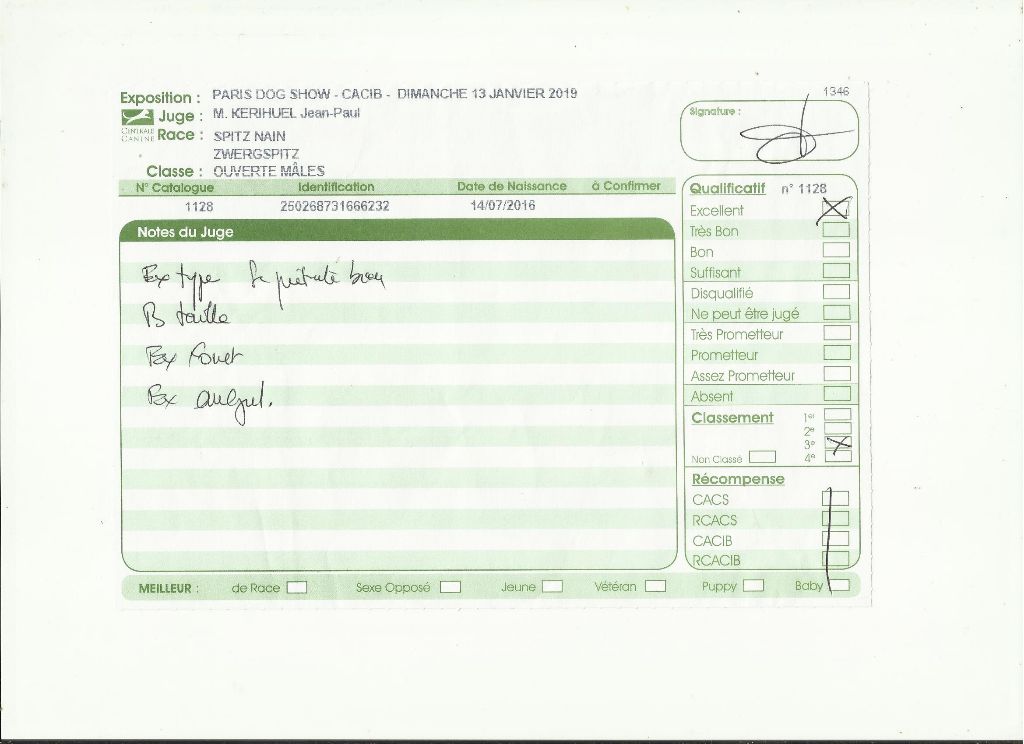 1346
Exposition : PARIS DOG SHOW - CACIB - DIMANCHE 13 JANVIER 2019
Juge : M. KERIHUEL Jean-Paul
CENTRALE CANINE
Race : SPITZ NAIN
ZWERGSPITZ
Classe : OUVERTE MÂLES
Signature :
N° Catalogue Identification Date de Naissance à Confirmer
1128 250268731666232 14/07/2016
Notes du Juge
Ex type Se présente bien
B taille
Ex fouet
Ex
Qualificatif n° 1128
Excellent
Très Bon
Bon
Suffisant
Disqualifié
Ne peut être jugé
Très Prometteur
Prometteur
Assez Prometteur
Absent
Classement 1er
2e
3e
Non Classé 4e
Récompense
CACS
RCACS
CACIB
RCACIB
MEILLEUR : de Race Sexe Opposé Jeune Vétéran Puppy Baby